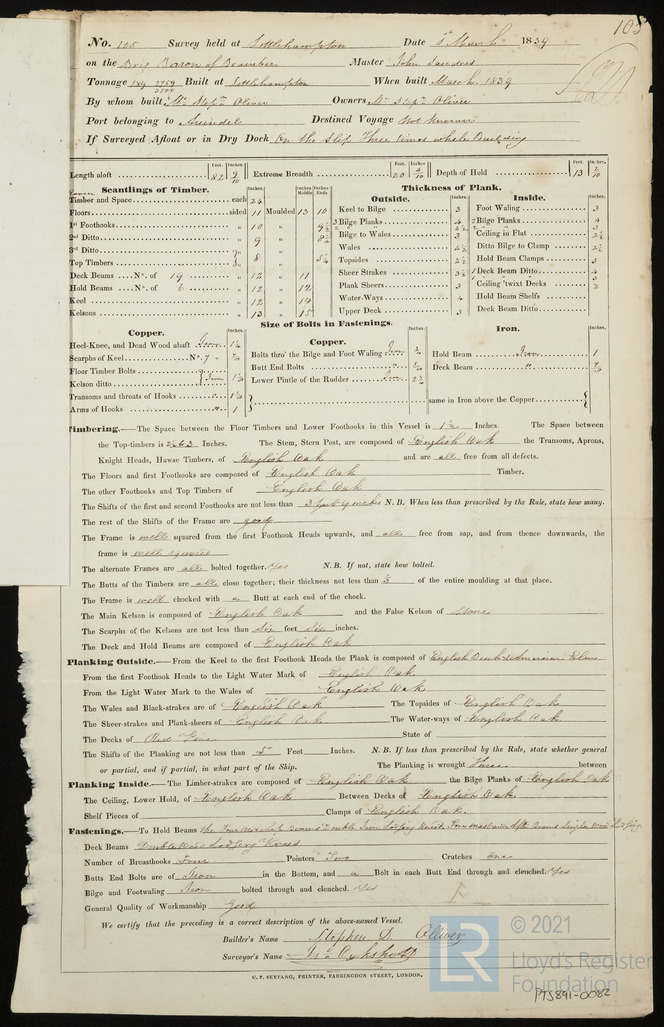 105
No. 105 Survey held at Littlehampton Date 5th March 1839
on the Brig Baron of Bramber Master John Saunders
Tonnage 189 2759/3500 Built at Littlehampton When built March 1839
By whom built Mr Stepn Oliver Owners Mr Stepn Oliver
Port belonging to Arundel Destined Voyage Not Known
If Surveyed Afloat or in Dry Dock On the Slip Three times while Building
Feet. Inches. Feet. Inches. Feet. Inches.
Length aloft 82 9/10 Extreme Breadth 20 Depth of Hold 13 2/10
Scantlings of Timber. Thickness of Plank.
Outside. Inside.
Timber and Space each 24 Keel to Bilge 3 Foot Waling 3
Floors sided 11 Moulded 13 10 Bilge Planks 4 Bilge Planks 4
1st Foothooks " 10 Bilge to Wales 3 Ceiling in Flat
2nd Ditto " 9 Wales 4½ Ditto Bilge to Clamp 2½
3rd Ditto " 8 Topsides 2½ Hold Beam Clamps 3
Top Timbers " Sheer Strakes Deck Beam Ditto 4
Deck Beams No. of 19 " 12 " 11 Plank Sheers 3 Ceiling 'twixt Decks 2
Hold Beams No. of 6 " 12 " 12 Water-Ways 4 Hold Beam Shelfs
Keel " 12 " 14 Upper Deck 3 Deck Beam Ditto
Kelsons " 13 " 15
Size of Bolts in Fastenings.
Copper. Copper. Iron.
Heel-Knee, and Dead Wood abaft Iron Bolts thro' the Bilge and Foot Waling Iron Hold Beam Iron 1
Scarphs of Keel No. 7 " Butt End Bolts " Deck Beam "
Floor Timber Bolts Lower Pintle of the Rudder Iron
Kelson ditto Iron
Transoms and throats of Hooks " same in Iron above the Copper
Arms of Hooks " 1
Timbering.—The Space between the Floor Timbers and Lower Foothooks in this Vessel is 1½ Inches. The Space between
the Top-timbers is 2 to 3 Inches. The Stem, Stern Post, are composed of English Oak the Transoms, Aprons,
Knight Heads, Hawse Timbers, of English Oak and are all free from all defects.
The Floors and first Foothooks are composed of English Oak Timber.
The other Foothooks and Top Timbers of English Oak
The Shifts of the first and second Foothooks are not less than 3 feet 9 inches N. B. When less than prescribed by the Rule, state how many.
The rest of the Shifts of the Frame are good
The Frame is well squared from the first Foothook Heads upwards, and all free from sap, and from thence downwards, the
frame is well squared
The alternate Frames are all bolted together. Yes N. B. If not, state how bolted.
The Butts of the Timbers are all close together; their thickness not less than ⅓ of the entire moulding at that place.
The Frame is well chocked with a Butt at each end of the chock.
The Main Kelson is composed of English Oak and the False Kelson of None
The Scarphs of the Kelsons are not less than Six feet Six inches.
The Deck and Hold Beams are composed of English Oak
Planking Outside.—From the Keel to the first Foothook Heads the Plank is composed of English Beech & American Elm
From the first Foothook Heads to the Light Water Mark of English Oak
From the Light Water Mark to the Wales of English Oak
The Wales and Black-strakes are of English Oak The Topsides of English Oak
The Sheer-strakes and Plank-sheers of English Oak The Water-ways of English Oak
The Decks of Red Pine State of
The Shifts of the Planking are not less than 5 Feet Inches. N. B. If less than prescribed by the Rule, state whether general
or partial, and if partial, in what part of the Ship. The Planking is wrought Three between
Planking Inside.—The Limber-strakes are composed of English Oak the Bilge Planks of English Oak
The Ceiling, Lower Hold, of English Oak Between Decks of English Oak.
Shelf Pieces of Clamps of English Oak.
Fastenings.—To Hold Beams the Four Midship Beams Double Iron Lodging Knees, Foremast and After Beams Single Wood Lodging.
Deck Beams Double Wood Lodging Knees
Number of Breasthooks Four Pointers Two Crutches one
Butts End Bolts are of Iron in the Bottom, and a Bolt in each Butt End through and clenched. Yes
Bilge and Footwaling Iron bolted through and clenched. Yes
General Quality of Workmanship Good
We certify that the preceding is a correct description of the above-named Vessel.
Builder's Name Stephen D. Olliver
Surveyor's Name
C. F. SEYFANG, PRINTER, FARRINGDON STREET, LONDON.
LR
© 2021
Lloyd's Register
Foundation
PTS891-0082